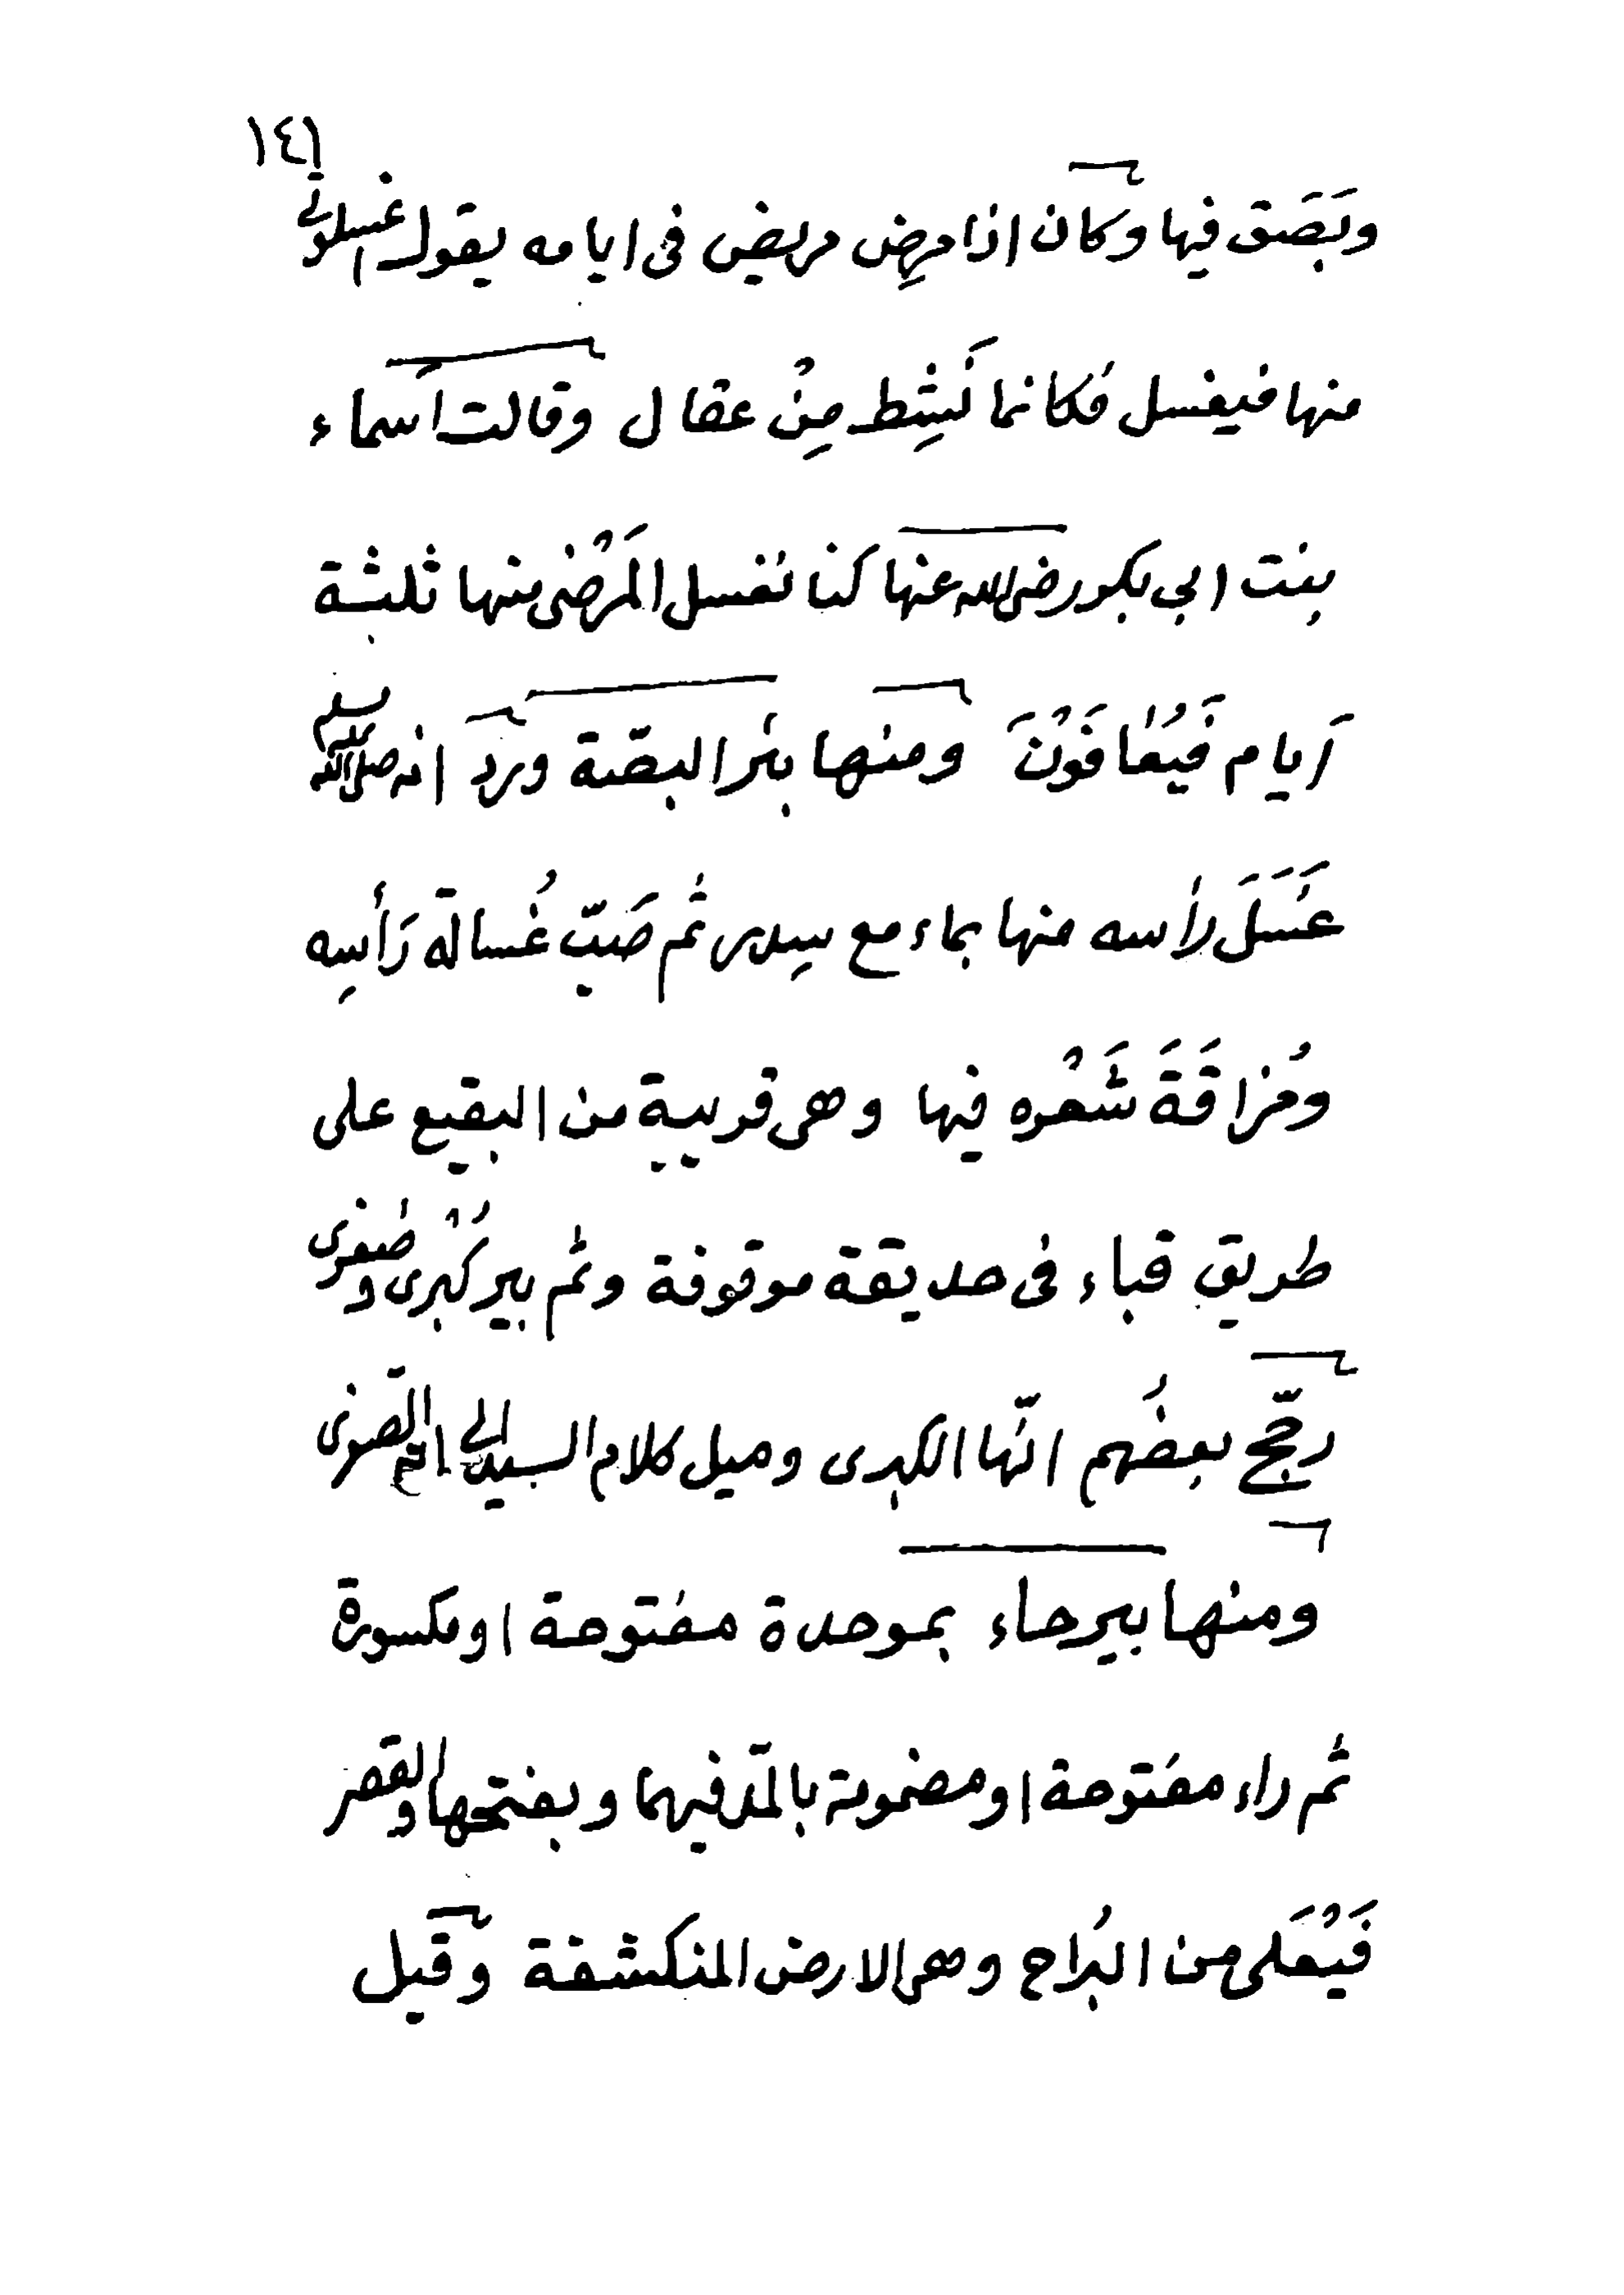 ١٤١
وبَصَق فيها وكان اذا مرِض مريض فى ايامه يقول اغسلونى
منها فيغسل فكانما نَشِط مِنْ عقال وقالت اسماء
بنت ابي بكر رضى الله عنها كنا نغسل المَرْضى منها ثلثة
اَيام فَيُعافَوْنَ ومنها بئر البصّة ورد انه صلى الله عليه وسلم
غَسَلَ رأسه منها بماء مع سِدر ثم صَبّ غُسالة رَأسِه
ومُزاقَةَ شَعْره فيها وهى قريبة من البقيع على
طريق قباء فى حديقة موقوفة وثم بير كُبْرى وصُغرى
رجّح بعضُهم انّها الكبرى وميل كلام السيد الى انها الصّغرى
ومنها بيرحاء بموحدة مفتوحة او مكسورة
ثم راء مفتوحة او مضمومة بالمدّ فيهما وبفتحها والقصر
فَيْعَلى من البُراح وهى الارض المنكشفة وقيل